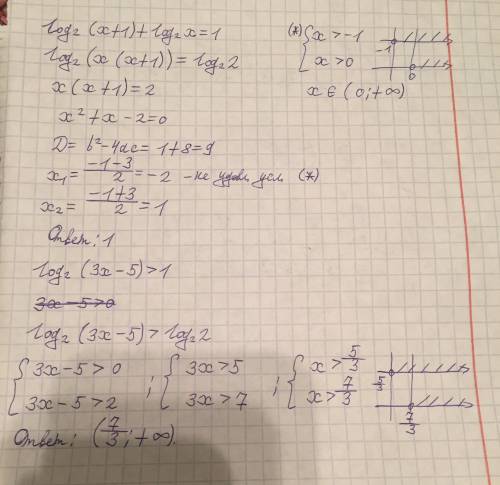 log₂(x+1)+log₂x=1
(*) { x>-1
x>0
-1
0
log₂(x(x+1))=log₂2
x(x+1)=2
x∈(0;+∞)
x²+x-2=0
D=b²-4ac=1+8=9
x₁=(-1-3)/2=-2 -не удовл. усл. (*)
x₂=(-1+3)/2=1
Ответ: 1
log₂(3x-5)>1
3x-5>0
log₂(3x-5)>log₂2
{ 3x-5>0 ; { 3x>5 ; { x>5/3
3x-5>2 3x>7 x>7/3
5/3
7/3
Ответ: (7/3;+∞).